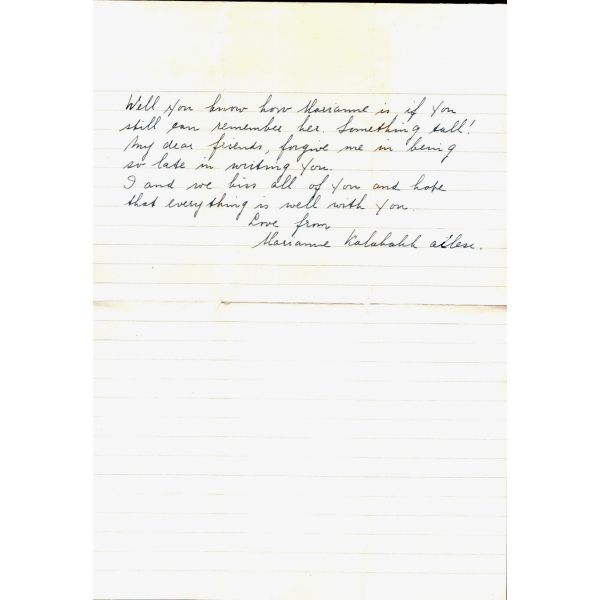 Well You know how Marianne is, if You
still can remember her. Something tall!
My dear friends, forgive me in being
so late in writing You.
I and we kiss all of You and hope
that everything is well with You.
Love from
Marianne